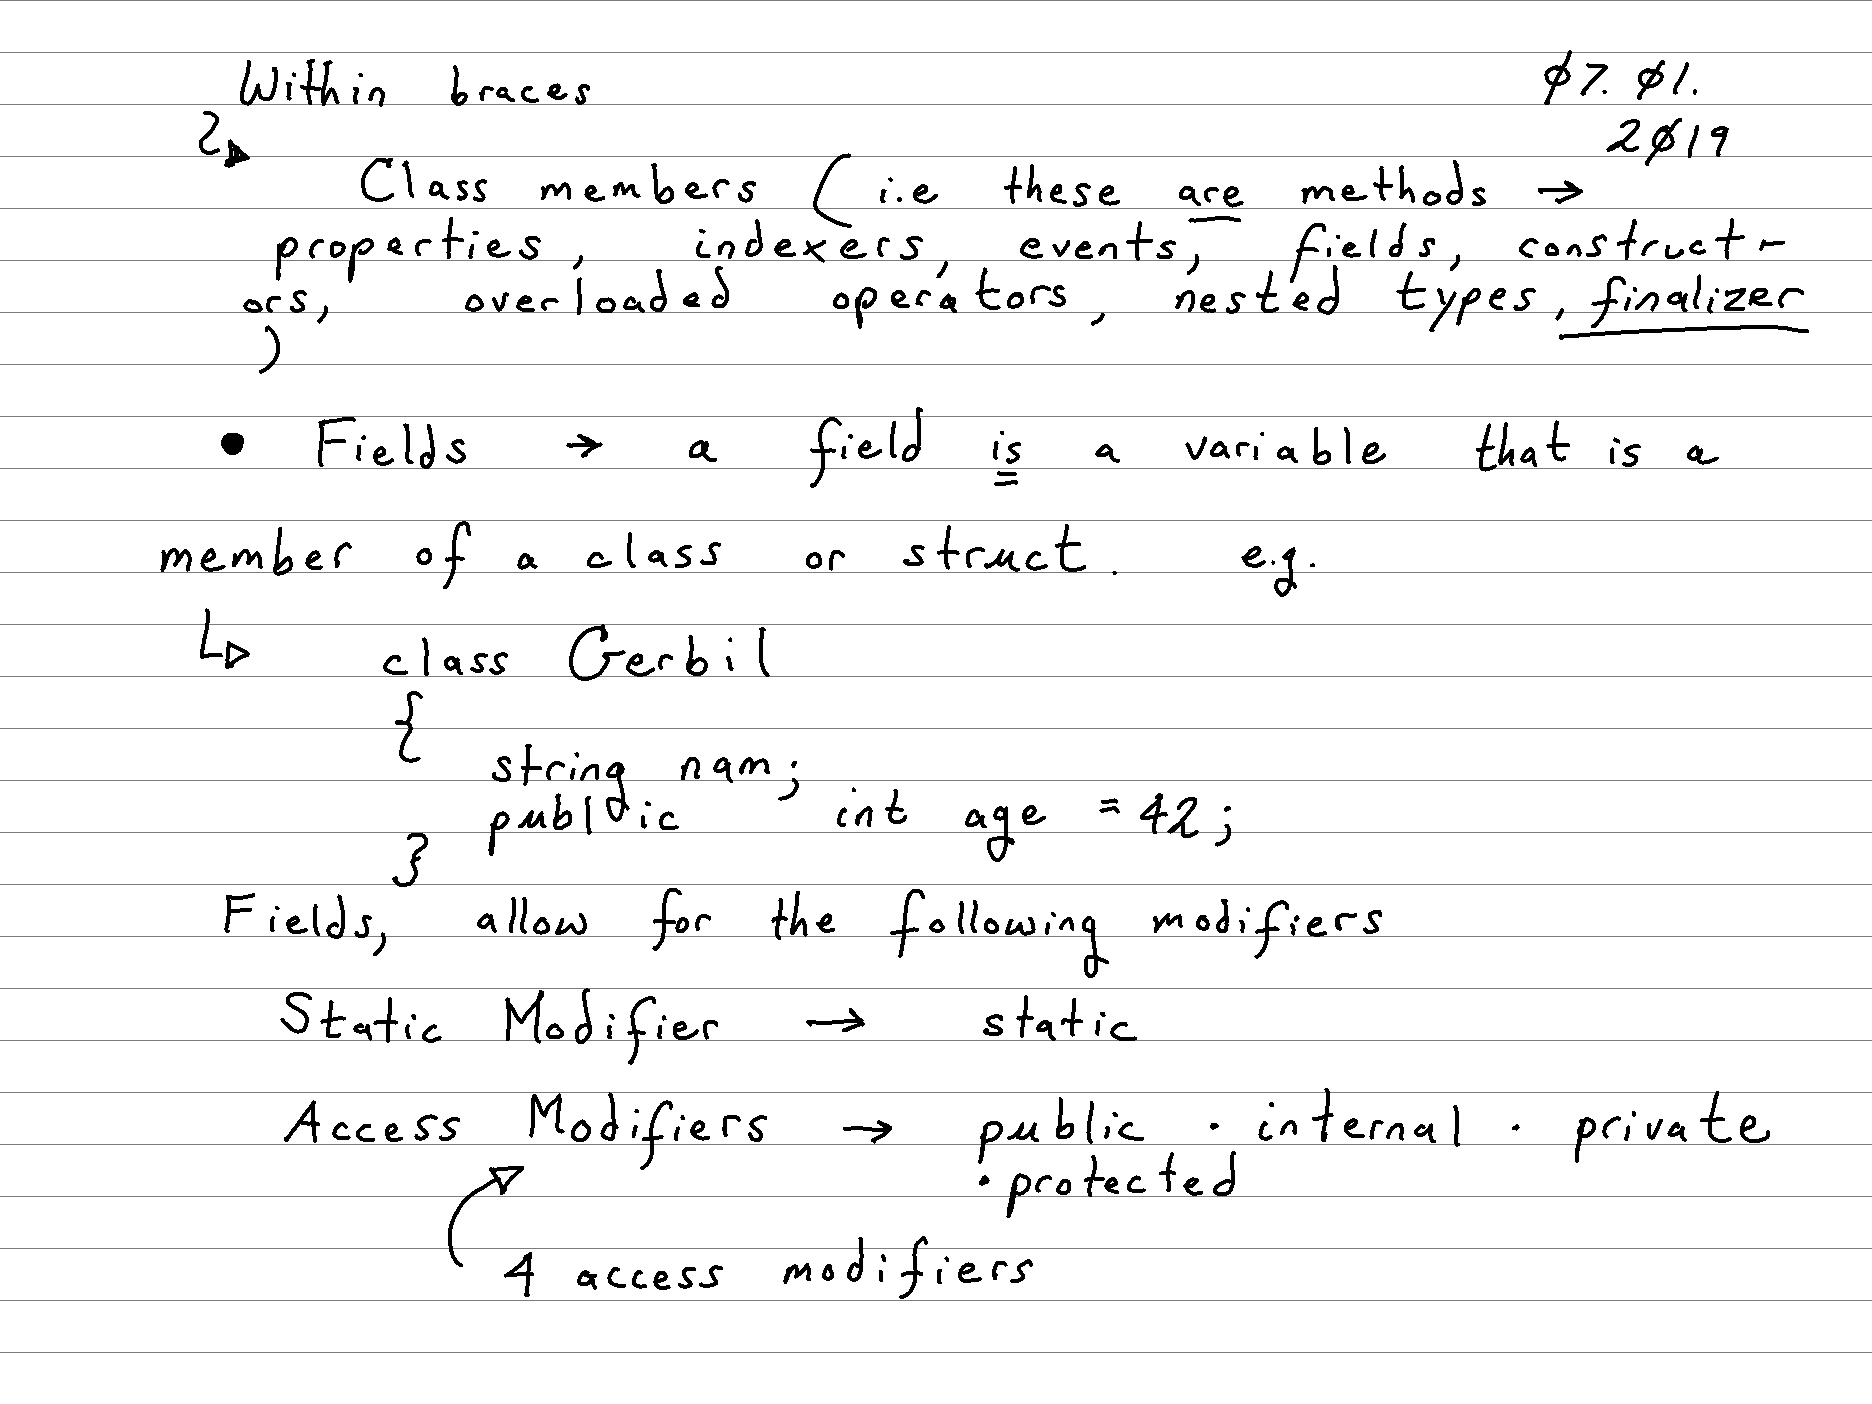 Within braces
ø7. ø1.
2ø19
Class members (i.e these are methods →
properties, indexers, events, fields, construct-
ors, overloaded operators, nested types, finalizer
)
• Fields → a field is a variable that is a
member of a class or struct. e.g.
class Gerbil
{
string nam;
public int age = 42;
}
Fields, allow for the following modifiers
Static Modifier → static
Access Modifiers → public · internal · private
· protected
4 access modifiers